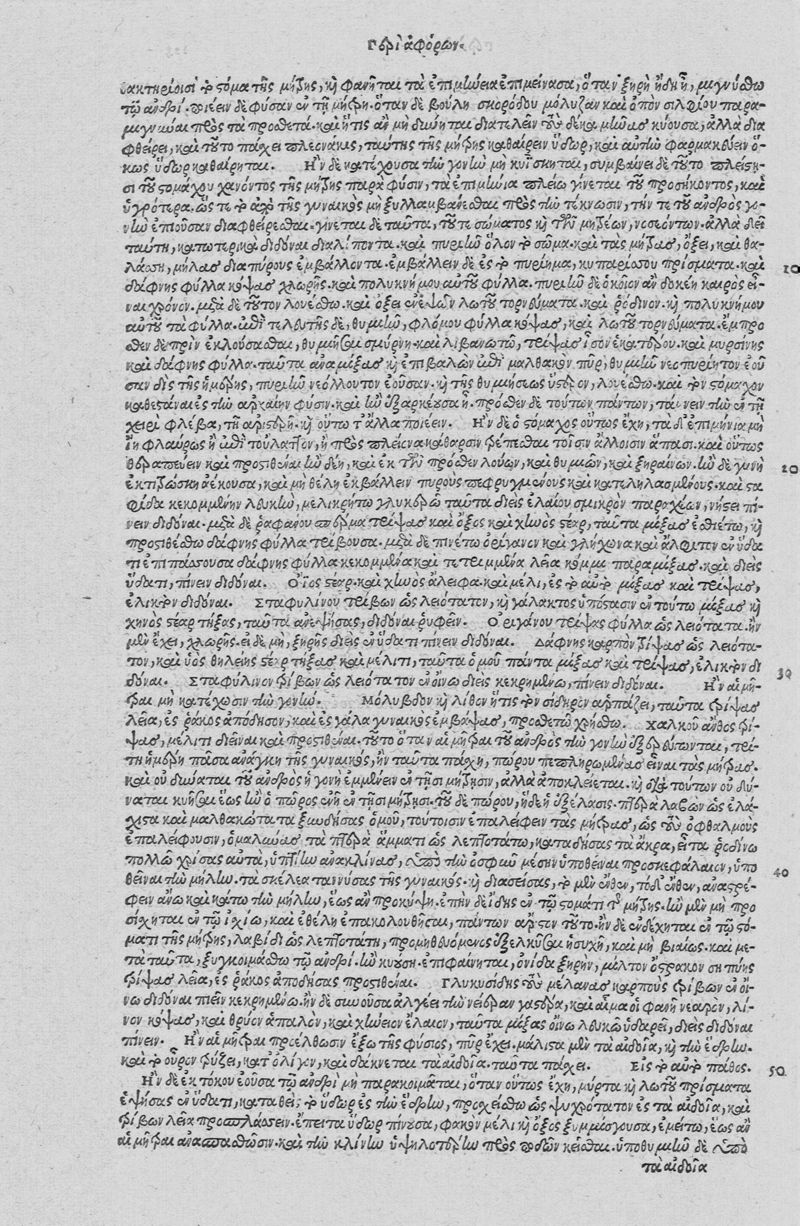 Περὶ ἀφόρων.
δακτηρίοισι τὸ στόμα τῆς μήτρης, καὶ φανῆται τὰ ἐπιμήνια ἐπιμείνασα, ὅταν ξηρὴ ἤδη ᾖ, μιγνύσθω
τῷ ἀνδρί. πίνειν δὲ φύσαν ἐν τῇ μήτρῃ. ὅταν δὲ βούλῃ σκορόδου μόλυζαν καὶ ὀπὸν σιλφίου παρα-
μιγνύναι πρὸς τὰ προσθετά. καὶ ἥτις ἂν μὴ δύνηται διατελεῖν τοὺς δέκα μῆνας κύουσα, ἀλλὰ δια
φθείρει, καὶ τοῦτο πάσχει πλεονάκις, ταύτης τῆς μήτρης καθαίρειν ὕδωρ, καὶ αὐτὴν φαρμακεύειν ὅ-
κως ὕδωρ καθαίρηται. Ἢν δὲ κατέχουσα τὴν γονὴν μὴ κυΐσκηται, συμβαίνει δὲ τοῦτο πλείστη-
σι τοῦ στομάχου χανόντος τῆς μήτρης παρὰ φύσιν, τὰ ἐπιμήνια πλείω γίνεται τοῦ προσήκοντος, καὶ
ὑγρότερα. ὥς τε τὸ ἀπὸ τῆς γυναικὸς μὴ ξυλλαμβάνεσθαι πρὸς τὴν τέκνωσιν, τήν τε τοῦ ἀνδρὸς γο-
νὴν ἐπιοῦσαν διαφθείρεσθαι. γίνεται δὲ ταῦτα, τοῦ τε σώματος καὶ τῶν μητρέων, νοσεόντων. ἀλλὰ δεῖ
ταύτῃ, κατωτερικὰ διδόναι διαλίποντα. καὶ πυριῆν ὅλον τὸ σῶμα. καὶ τὰς μήτρας, ὄξει, καὶ θα-
λάσσῃ, μήλας διαπύρους ἐμβάλλοντα. ἐμβάλλειν δὲ ἐς τὸ πυρίημα, κυπαρίσσου πρίσματα. καὶ 10
δάφνης φύλλα κόψας χλωρῆς. καὶ πολυκνήμου αὐτοῦ φύλλα. πυριῆν δὲ ὁκόσον ἂν δοκέῃ καιρὸς εἶ-
ναι χρόνον. μετὰ δὲ τοῦτον λουέσθω. καὶ ὄξει ἀνέψων λωτοῦ τορνεύματα. καὶ ῥόδινον. καὶ πολυκνήμου
αὐτοῦ τὰ φύλλα. ἐπὶ τελευτῆς δὲ, θυμιῆν, φλόμου φύλλα κόψας, καὶ λωτοῦ τορνεύματα. ἔμπρο
σθεν δὲ πρὶν ἐκλούσασθαι, θυμιῆσαι σμύρνῃ. καὶ λιβανωτῷ, τρίψας ἴσον ἑκατέρου. καὶ μυρσίνης
καὶ δάφνης φύλλα. ταῦτα ἀναμίξας καὶ ἐπιβαλὼν ἐπὶ μαλθακὸν πῦρ, θυμιῆν νεοπυρίητον ἐοῦ
σαν δὶς τῆς ἡμέρης, πυριῆν νεόλουτον ἐοῦσαν. καὶ τῆς θυμιήσεως ὕστερον, λουέσθω. καὶ τὸν στόμαχον
καθεστάναι ἐς τὴν ἀρχαίην φύσιν. καὶ ἢν ἐξαρκέουσα ᾖ. πρόσθεν δὲ τούτων πάντων, τάμνειν τὴν ἐν τῇ
χειρὶ φλέβα, τῇ ἀριστερῇ. καὶ οὕτω τ' ἄλλα ποιέειν. Ἢν δὲ ὁ στόμαχος οὕτως ἔχῃ, τὰ δ' ἐπιμήνια μὴ
ἴῃ φλαύρως ἢ ἐπὶ τοὔλαττον, ἢ πρὸς πλείονα κάθαρσιν τρέπεσθαι τοῖσιν ἄλλοισιν ἅπασι. καὶ οὕτως
θεραπεύειν καὶ προστιθέναι ἢν δέῃ, καὶ ἐκ τῶν πρόσθεν λούων, καὶ θυμιῶν, καὶ ξηραίνων. ἢν δὲ γυνὴ 20
ἐκτιτρώσκῃ ἀέκουσα, καὶ μὴ θέλῃ ἐκβάλλειν πυροὺς πεφρυγμένους καὶ πτιλασμένους. καὶ στα
φίδα κεκομμένην λευκὴν, μελικρήτῳ γλυκερῷ ταῦτα διεὶς ἐλαίου σμικρὸν παραχέων, νήστει πί-
νειν διδόναι. μετὰ δὲ ῥαφάνου σπέρμα τρίψας καὶ ὄξος καὶ χηνὸς στέαρ, ταῦτα μίξας ἐσθιέτω, καὶ
προστιθέσθω δάφνης φύλλα τρίβουσα. μετὰ δὲ πινέτω ὀρίγανον καὶ γλήχωνα καὶ ἄλφιτον ἐν ὕδα
τι ἐπιπάσσουσα δάφνης φύλλα κεκομμένα καὶ τετριμμένα λεῖα κόμμι παραμίξας. καὶ διεὶς
ὕδατι, πίνειν διδόναι. Οἰὸς στέαρ. καὶ χηνὸς ἄλειφα. καὶ μέλι, ἐς τὸ αὐτὸ μίξας καὶ τρίψας,
ἐλικτὸν διδόναι. Σταφυλίνου τρίβων ὡς λειότατον, καὶ γάλακτος ὑπόστασιν ἐν τούτῳ μίξας καὶ
χηνὸς στέαρ τήξας, ταῦτα ἀνεψήσας, διδόναι ῥυφεῖν. Ὀριγάνου τρίψας φύλλα ὡς λειότατα. ἢν
μὲν ἔχει, χλωρῆς. εἰ δὲ μὴ, ξηρῆς διεὶς ἐν ὕδατι πίνειν διδόναι. Δάφνης καρπὸν τρίψας ὡς λειότα-
τον, καὶ ὑὸς θηλείης στέαρ τήξας καὶ μέλιτι, ταῦτα ὁμοῦ πάντα μίξας καὶ τρίψας, ἐλικτὸν δι
δόναι. Σταφυλίνον τρίβων ὡς λειότατον ἐν οἴνῳ διεὶς κεκρημένῳ, πίνειν διδόναι. Ἢν αἱ μῆ- 30
τραι μὴ κατέχωσιν τὴν γονήν. Μόλυβδον καὶ λίθον ἥτις τὸν σίδηρον ἁρπάζει, ταῦτα τρίψας
λεῖα, ἐς ῥάκος ἀπόδησον, καὶ ἐς γάλα γυναικὸς ἐμβάψας, προσθέτῳ χρήσθω. Χαλκοῦ ἄνθος τρί-
ψας, μέλιτι διεῖναι καὶ προστιθέναι. τοῦτο ὅταν αἱ μῆτραι τοῦ ἀνδρὸς τὴν γονὴν ἐξερεύγωνται, τρί-
τῃ ἡμέρῃ πᾶσα ἀνάγκη τῆς γυναικὸς, ἢν ταῦτα πάσχῃ, πώρου πεπληρωμένας εἶναι τὰς μήτρας.
καὶ οὐ δύναται τοῦ ἀνδρὸς ἡ γονὴ ἐμμένειν ἐν τῇσι μήτρῃσιν, ἀλλὰ ἀποκλείεται. καὶ διὰ τούτων οὐ δύ-
ναται κυῆσαι ἕως ἢν ὁ πῶρος ἐνῇ ἐν τῇσι μήτρῃσι. τοῦ δὲ πώρου, ἥδε ἡ ἐξέλασις. πτερὰ λαβὼν ὡς ἐλά-
χιστα καὶ μαλθακώτατα ξυνδήσας ὁμοῦ, τούτοισιν ἐπαλείφειν τὰς μήτρας, ὡς τοὺς ὀφθαλμοὺς
ἐπαλείφουσιν, ὁμαλύνας τὰ πτερὰ ἅμματι ὡς λεπτοτάτῳ, καταδήσας τὰ ἄκρα, εἶτα ῥοδίνῳ
πολλῷ χρίσας αὐτὰ, ὑπτίην ἀνακλίνας, ὑπὸ τὴν ὀσφὺν μέσην ὑποθεῖναι προσκεφάλαιον, ὑπο
θεῖναι τὴν μήλην. τὰ σκέλεα ταννύσας τῆς γυναικὸς. καὶ διαστείσας, τὸ μὲν ἔνθεν, τὸ δ' ἔνθεν, ἀναστρέ- 40
φειν ἄνω καὶ κάτω τὴν μήλην, ἕως ἂν προκύψῃ. ἐπὴν δὲ ἴδῃς ἐν τῷ στόματι τῆς μήτρης. ἢν μὲν μὴ προ
σίχηται ἐν τῷ ἰσχίῳ, καὶ ἐθέλῃ ἐπακολουθῆσαι, πάντων ἄριστον τοῦτο. ἢν δὲ ἐνδέχηται ἐν τῷ στό-
ματι τῆς μήτρης, λαβίδι ὡς λεπτοτάτῃ, προμηθευόμενος ἐξελκῦσαι ἡσυχῇ, καὶ μὴ βιαίως. καὶ με-
τὰ ταῦτα, ξυγκοιμάσθω τῷ ἀνδρί. ἢν κυήσῃ. ἐπιφαίνηται, ὀνίδα ξηρὴν, μέλτον ὄστρακον σηπίης
τρίψας λεῖα, ἐς ῥάκος ἀποδήσας προστιθέναι. Γλυκυσίδης τοὺς μέλανας καρποὺς τρίβων ἐν οἴ-
νῳ διδόναι πιεῖν κεκρημένῳ. ἢν δὲ σινοῦσα ἀλγέει τὴν νείαιραν γαστέρα, καὶ αἷμα οἱ φανῇ νεαρὸν, λί-
νον κόψας, καὶ θρύον ἁπαλὸν, καὶ χήνειον ἔλαιον, ταῦτα μίξας οἴνῳ λευκῷ ὑδαρεῖ, διεὶς διδόναι
πίνειν. Ἢν αἱ μῆτραι προέλθωσιν ἔξω τῆς φύσιος, πῦρ ἔχει. μάλιστα μὲν τὰ αἰδοῖα, καὶ τὴν ἕδρην.
καὶ τὸ οὖρον στύζει, κατ' ὀλίγον, καὶ δάκνεται τὰ αἰδοῖα. ταῦτα πάσχει. Εἰς τὸ αὐτὸ πάθος.
Ἢν δὲ ἐκ τόκου ἐοῦσα τῷ ἀνδρὶ μὴ παρακοιμᾶται, ὅταν οὕτως ἔχῃ, μύρτα καὶ λωτοῦ πρίσματα 50
ἑψήσας ἐν ὕδατι, καταθεὶς τὸ ὕδωρ ἐς τὴν ἕδρην, προσχείσθω ὡς ψυχρότατον ἐς τὰ αἰδοῖα, καὶ
τρίβων λεῖα προσπλάσσειν. ἔπειτα ὕδωρ πίνουσα, φακὸν μέλι καὶ ὄξος ξυμμίσγουσα, ἐμείτω, ἕως ἂν
αἱ μῆτραι ἀνασπασθῶσιν. καὶ τὴν κλίνην ὑψηλοτέρην πρὸς ποδῶν κεῖσθαι. ὑποθυμιῆν δὲ ὑπὸ
τὰ αἰδοῖα